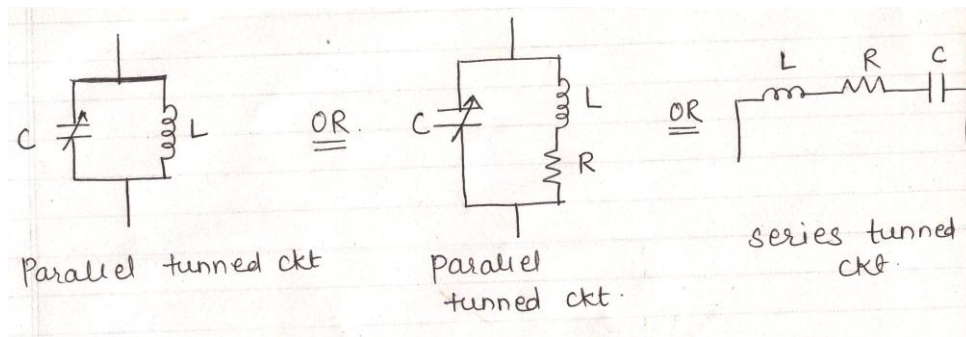 C
L
OR.
C
L
R
OR
L R C
Parallel tunned ckt
parallel
tunned ckt.
series tunned
ckt.